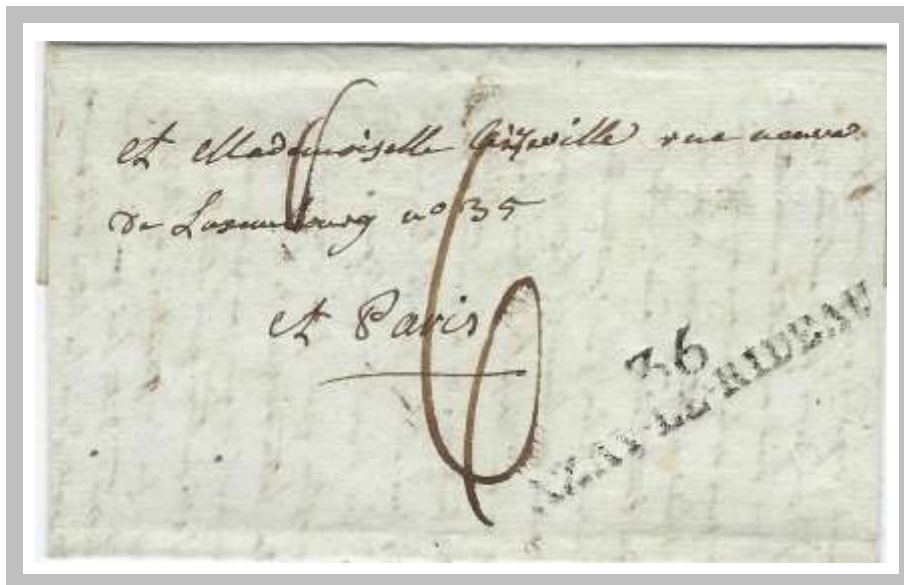 A Mademoiselle rue neuve
de Luxembourg no 35
A Paris
6
36
AZAY-LE-RIDEAU